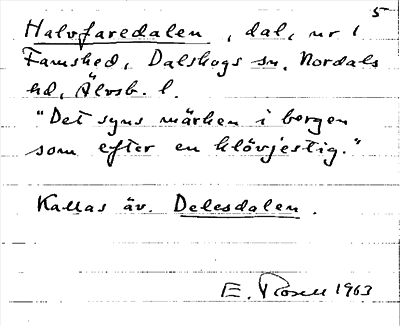 5
Halvfaredalen, dal, nr 1
Famshed, Dalskogs sn, Nordals
hd, Älvsb. l.
"Det syns märken i bergen
som efter en klövjestig."
Kallas äv. Delesdalen.
E. Rosell 1963